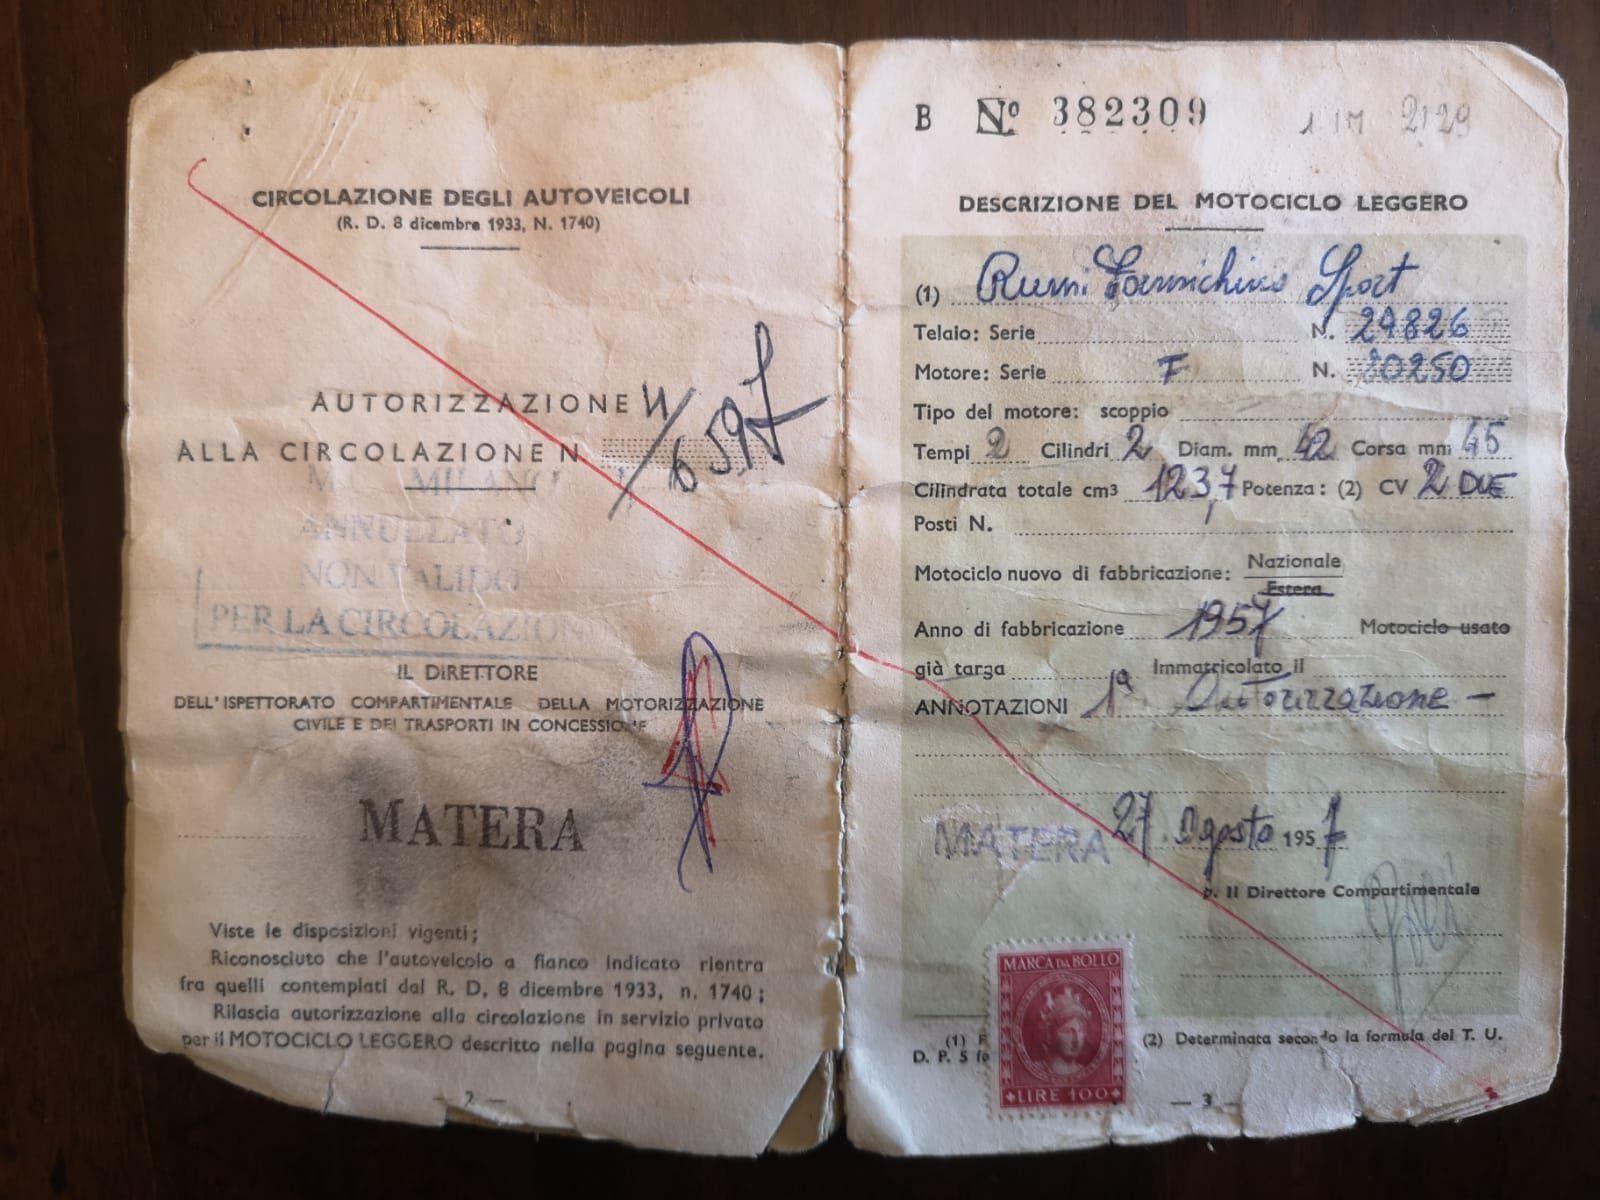 CIRCOLAZIONE DEGLI AUTOVEICOLI
(R. D. 8 dicembre 1933, N. 1740)
AUTORIZZAZIONE
ALLA CIRCOLAZIONE N. 6597
M. C. MILANO
ANNULLATO
NON VALIDO
PER LA CIRCOLAZIONE
IL DIRETTORE
DELL'ISPETTORATO COMPARTIMENTALE DELLA MOTORIZZAZIONE
CIVILE E DEI TRASPORTI IN CONCESSIONE
MATERA
Viste le disposizioni vigenti;
Riconosciuto che l'autoveicolo a fianco indicato rientra
fra quelli contemplati dal R. D. 8 dicembre 1933, n. 1740;
Rilascia autorizzazione alla circolazione in servizio privato
per il MOTOCICLO LEGGERO descritto nella pagina seguente.
— 2 —
B Nº 382309
DESCRIZIONE DEL MOTOCICLO LEGGERO
(1) Rumi Formichino Sport
Telaio: Serie N. 29826
Motore: Serie F N. 20250
Tipo del motore: scoppio
Tempi 2 Cilindri 2 Diam. mm. 42 Corsa mm 45
Cilindrata totale cm3 123,7 Potenza: (2) CV 2 DUE
Posti N.
Motociclo nuovo di fabbricazione: Nazionale
Estera
Anno di fabbricazione 1957 Motociclo usato
già targa Immatricolato il
ANNOTAZIONI 1ª Autorizzazione -
MATERA 27 Agosto 1957
p. Il Direttore Compartimentale
MARCA DA BOLLO
LIRE 100
(1) F (2) Determinata secondo la formula del T. U.
D. P. 5 fe
— 3 —